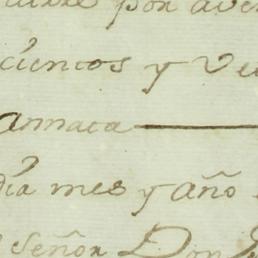 por
cientos y Ve
annaca
dia mes y año
Señor Don